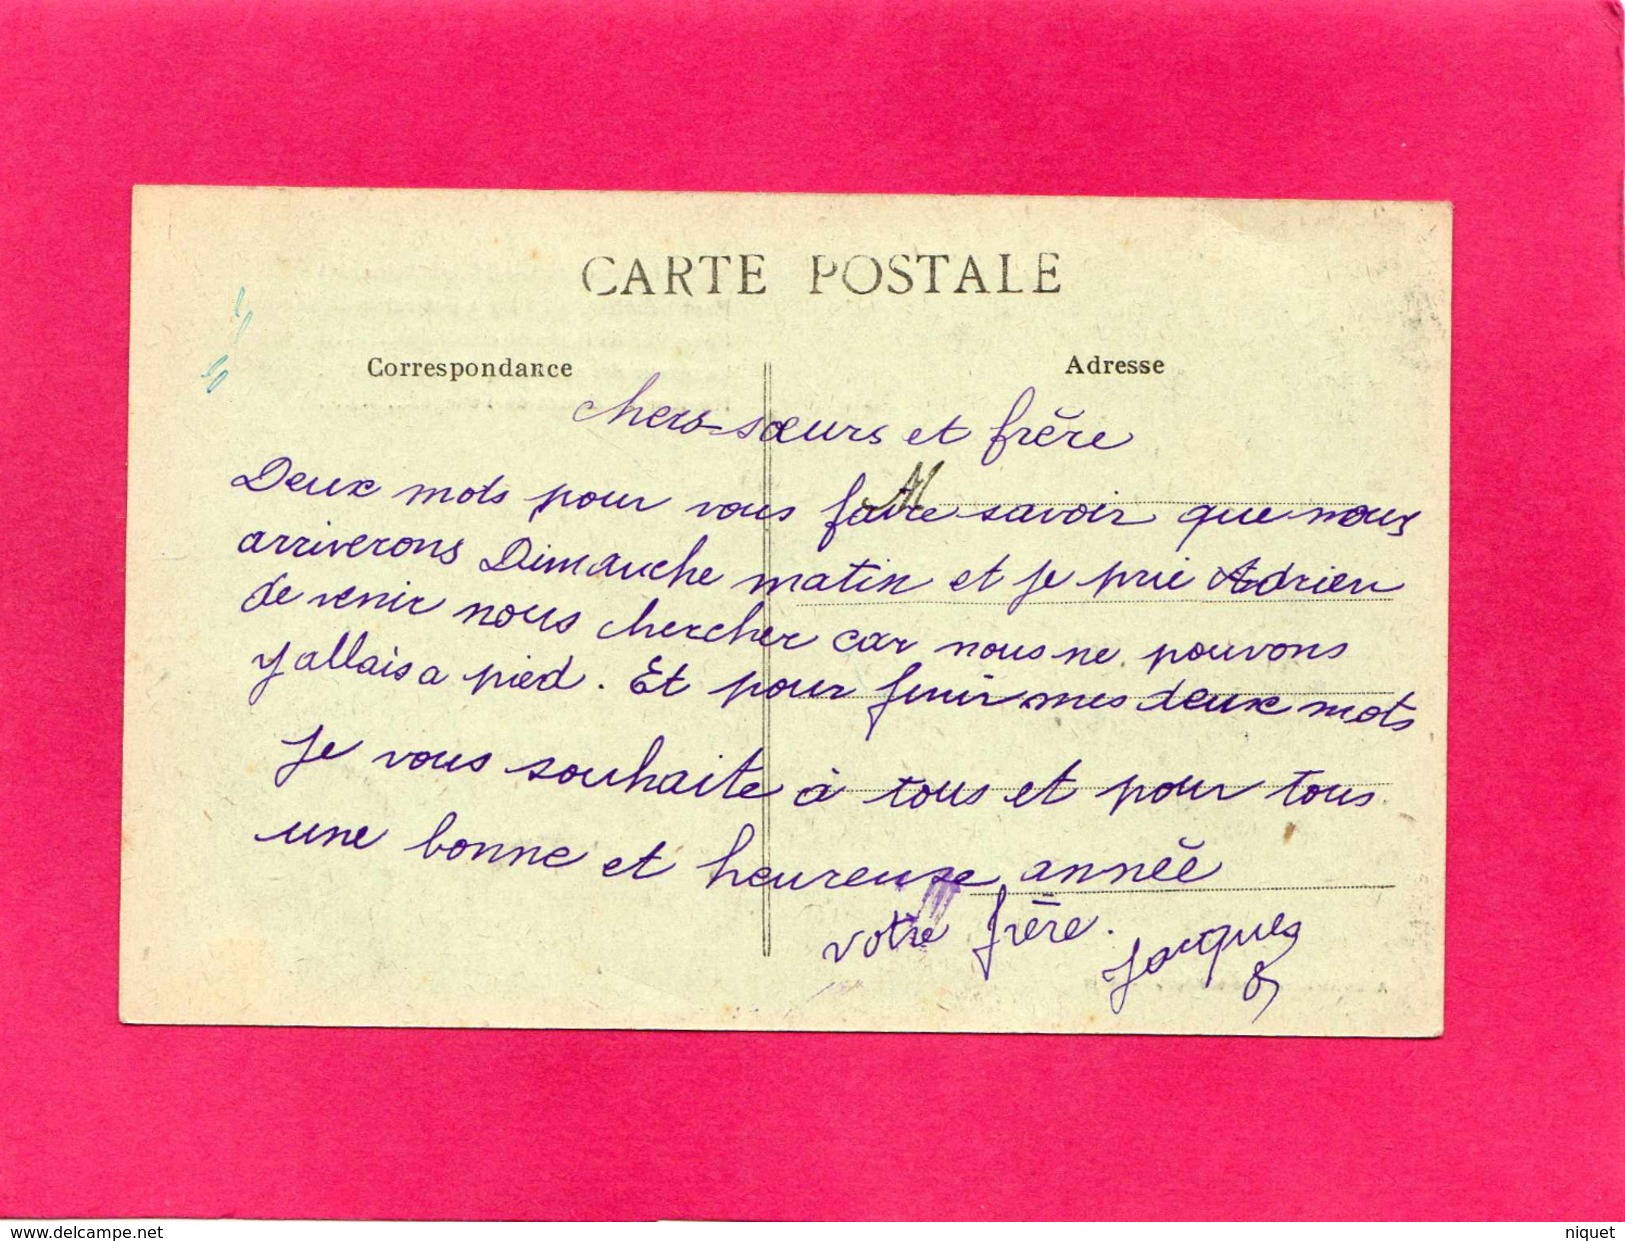 CARTE POSTALE
Correspondance
Adresse
chers sœurs et frère
M
Deux mots pour vous faire savoir que nous
arriverons Dimanche matin et je prie Adrien
de venir nous chercher car nous ne pouvons
y allais a pied. Et pour finir mes deux mots
je vous souhaite à tous et pour tous
une bonne et heureuse année
votre frère.
Jacques
delcampe.net
niquet